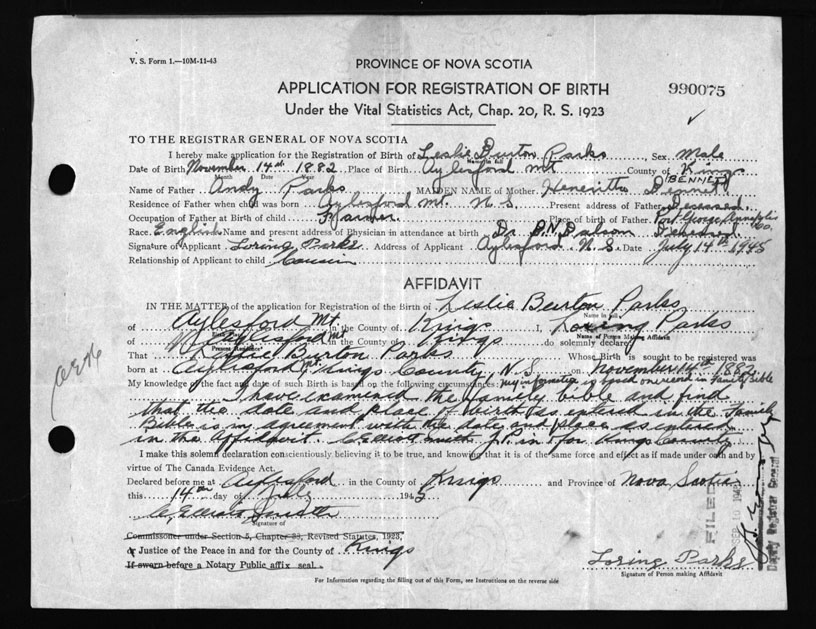 V. S. Form 1.—10M-11-43
PROVINCE OF NOVA SCOTIA
APPLICATION FOR REGISTRATION OF BIRTH
990075
Under the Vital Statistics Act, Chap. 20, R. S. 1923
TO THE REGISTRAR GENERAL OF NOVA SCOTIA
I hereby make application for the Registration of Birth of Leslie Burton Parks Sex Male
Name in full
Date of Birth November 14th 1882 Place of Birth Aylesford Mt County of Kings
Month Date Year
(BENNETT)
Name of Father Andy Parks MAIDEN NAME of Mother Bennett
Residence of Father when child was born Aylesford Mt. N. S. Present address of Father Deceased
Occupation of Father at Birth of child Farmer. Place of birth of Father Port George Annapolis Co.
Race English Name and present address of Physician in attendance at birth Dr.
Signature of Applicant Loring Parks Address of Applicant Aylesford N. S. Date July 14th 1945
Relationship of Applicant to child Cousin
AFFIDAVIT
IN THE MATTER of the application for Registration of the Birth of Leslie Burton Parks
Name in full
of Aylesford Mt. in the County of Kings I, Loring Parks
Name of Person Making Affidavit
of Aylesford Mt in the County of Kings do solemnly declare
Present Residence
That Leslie Burton Parks Whose Birth is sought to be registered was
born at Aylesford Mt. Kings County, N. S. on November 14th 1882.
My knowledge of the fact and date of such Birth is based on the following circumstances: my information is based on record in Family Bible
I have examined the family bible and find
that the date and place of birth as entered in the Family
Bible is my agreement with the date and place as entered
in the Affidavit. C Elliott Smith J.P. in & for Kings County
I make this solemn declaration conscientiously believing it to be true, and knowing that it is of the same force and effect as if made under oath and by
virtue of The Canada Evidence Act.
Declared before me at Aylesford in the County of Kings and Province of Nova Scotia
this 14th day of July 1945
C Elliott Smith
Signature of
Commissioner under Section 5, Chapter Revised Statutes, 1923,
or Justice of the Peace in and for the County of Kings
If sworn before a Notary Public affix seal.
Loring Parks
Signature of Person making Affidavit
For Information regarding the filling out of this Form, see Instructions on the reverse side
FILED
SEP 10
Deputy Registrar General